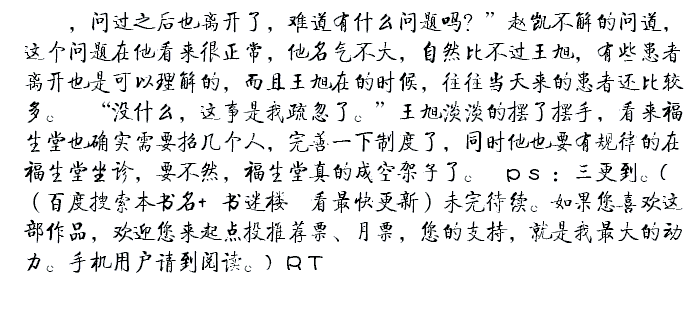 ，问过之后也离开了，难道有什么问题吗？”赵凯不解的问道，
这个问题在他看来很正常，他名气不大，自然比不过王旭，有些患者
离开也是可以理解的，而且王旭在的时候，往往当天来的患者还比较
多。 “没什么，这事是我疏忽了。”王旭淡淡的摆了摆手，看来福
生堂也确实需要招几个人，完善一下制度了，同时他也要有规律的在
福生堂坐诊，要不然，福生堂真的成空架子了。 ps：三更到。（
（百度搜索本书名+ 书迷楼 看最快更新）未完待续。如果您喜欢这
部作品，欢迎您来起点投推荐票、月票，您的支持，就是我最大的动
力。手机用户请到阅读。）RT